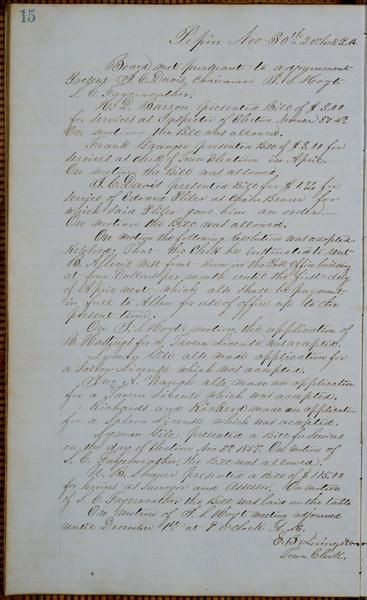 15
Pepin Nov 30th 2 oclock P.M.
Board met pursuant to adjournment
Present J. C. Davis, Chairman T. S. Hoyt
S. C. Fayerweather.
H. D. Barron presented Bill of $ 3.00
for services as Inspector of Election November 3d
On motion the Bill was allowed.
Frank Granger presented Bill of $ 3.00 for
services as clerk of Town Election in April.
On motion the Bill was allowed,
J. C. Davis presented Bill for $ 1.26 for
service of Edward as Chain Bearer for
which said gave him an order.
On motion the Bill was allowed.
On motion the following resolution was adopted.
Resolved, That the Clerk be instructed to rent
B. Allens west front room in the Post Office building
at four Dollars per month until the first day
of April next which also shall be payment
in full to Allen for use of office up to the
present time.
On T. S. Hoyts motion the application of
B. Hastings for a Tavern License was accepted.
Lyman Gile also made application for
a Saloon License which was accepted.
Benj A. Waugh also made an application
for a Tavern License which was accepted.
Richards and made an application
for a Saloon License which was accepted.
Lyman Gile presented a Bill for services
on the day of Election Nov 1857. On motion of
S. C. Fayerweather, the Bill was allowed.
W. B. presented a Bill of $ 115.00
for services as Surveyor and On motion
of S. C. Fayerweather the Bill was laid on the table
On motion of T. S. Hoyt meeting adjourned
until December 1st at 9 Oclock A. M.
E. B. Livingston
Town Clerk.